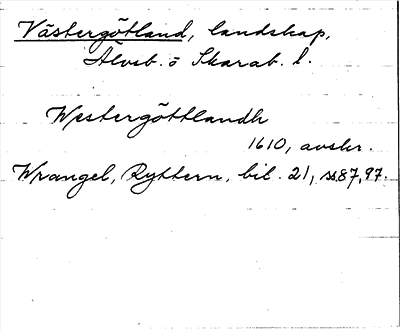 Västergötland, landskap,
Älvsb. o Skarab. l.
Westergöttlandh
1610, avskr.
Wrangel, Ryttern, bil. 21, ss 87, 97.